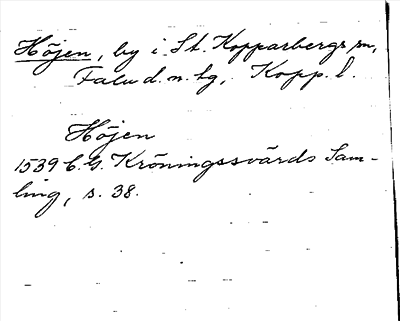 Höjen, by i St. Kopparbergs sn,
Falu d. n. tg, Kopp. l.
Höjen
1539 C. G. Kröningssvärds Sam-
ling, s. 38.